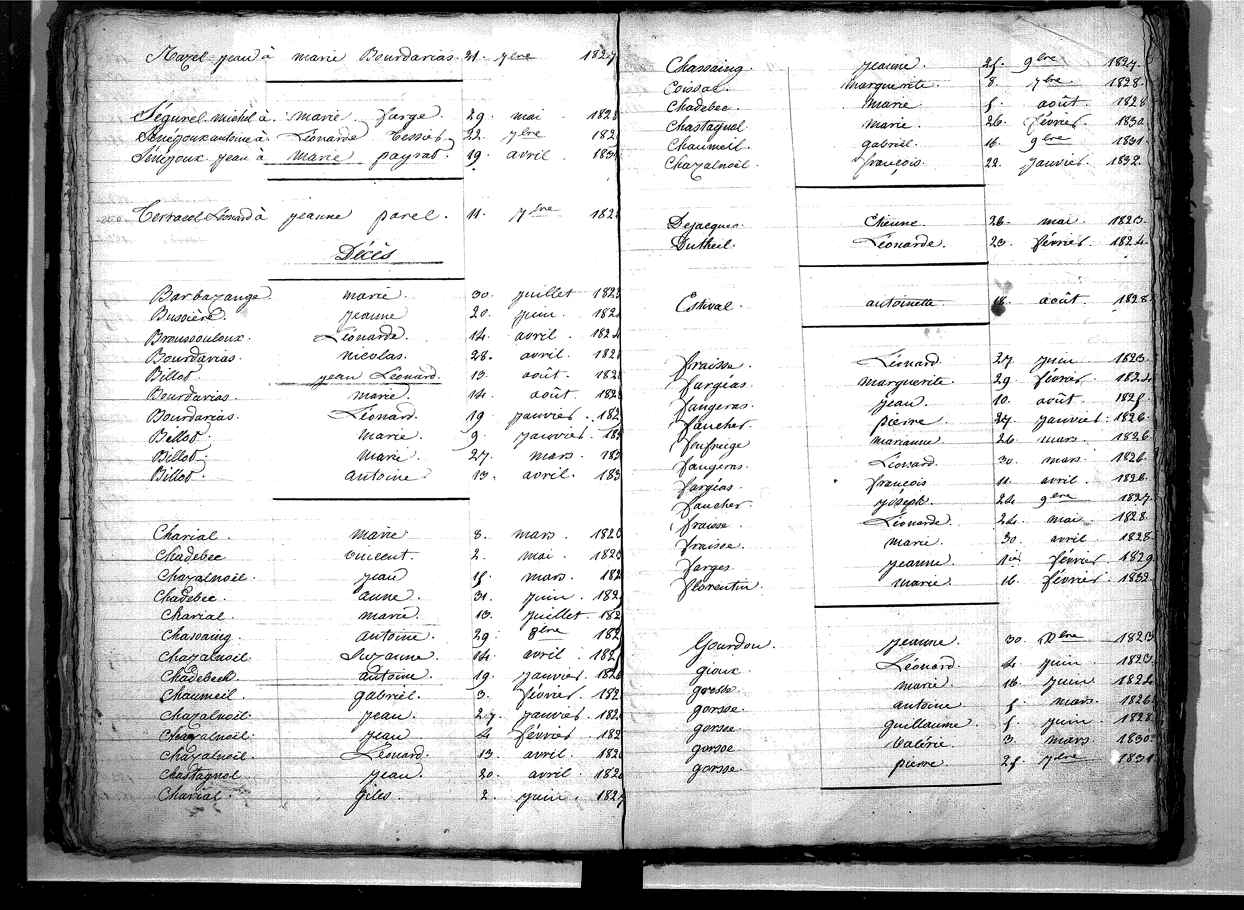 Mazel jean à marie Bourdarias. 21. 7bre 1827
Ségurel michel à marie farge. 29. mai 182
Sénéjoux antoine à Léonarde Tessier. 22. 7bre 182
Sénéjoux jean à marie payrat. 19. avril. 183
Terracol Léonard à jeanne parel. 11. 7bre 182
Décès
Barbazange marie. 30. juillet 182
Bussière jeanne 20. juin. 182
Broussouloux. Léonarde. 14. avril. 182
Bourdarias. nicolas. 28. avril. 182
Billot. jean Léonard. 13. août. 182
Bourdarias. marie. 14. août. 182
Bourdarias. Léonard. 19. janvier. 182
Bellot. marie. 9. janvier. 18
Billot. marie. 27. mars. 183
Billot. antoine. 13. avril. 183
Charial. marie 3. mars. 182
Chadebec vincent. 2. mai. 182
Chazalnoël. jean 15. mars. 182
Chadebec. anne. 31. juin. 182
Charial. marie. 13. juillet 182
Chassaing. antoine. 29. 8bre 182
Chazalnoël. Suzanne. 14. avril. 182
Chadebech. antoine. 19. janvier. 182
Chaumeil. gabriel. 3. février. 182
Chazalnoël. jean. 27. janvier. 182
Chazalnoël. jean. 4. février. 182
Chazalnoël. Léonard. 13. avril. 182
Chastagnol. jean. 20. avril. 182
Charial. giles. 2. juin. 182
Chassaing. jeanne. 25. 9bre 1827.
Coissac. marguerite. 8. 7bre 1828.
Chadebec. marie. 5. août. 1828
Chastagnol marie. 26. février. 1830.
Chaumeil gabriel. 16. 9bre 1831.
Chazalnoël françois. 22. janvier. 1832.
Dejacques. Etienne. 26. mai. 1823.
Dutheil. Léonarde. 23. février. 1824.
Estival. antoinette. 18. août. 1828.
fraisse. Léonard. 27. juin 1823.
fargéas. marguerite. 29 février. 1824
faugeras. jean. 10. août. 1825.
faucher pierre. 27. janvier. 1826.
feufreige marianne. 26. mars. 1826.
faugeras. Léonard. 30. mars. 1826.
fargéas. françois 11. avril. 1826.
faucher joséph. 24. 9bre 1827.
fraisse. Léonarde. 24. mai. 1828.
fraisse. marie. 30. avril. 1828.
farges. jeanne. 1er février. 1829
florentin. marie. 16. février. 1832.
Gourdon. jeanne. 30. Xbre 1823
gioux. Léonard. 4. juin. 1823.
gorsse. marie. 16. juin 1824
gorsse. antoine 5. mars. 1826
gorsse. guillaume. 5. juin. 1828.
gorsse Valérie. 3. mars. 1830.
gorsse. pierre. 25. 7bre 1831